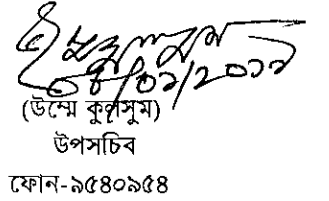 ০৪/০১/২০১৯
(উম্মে কুলসুম)
উপসচিব
ফোন-৯৫৪০৯৫৪